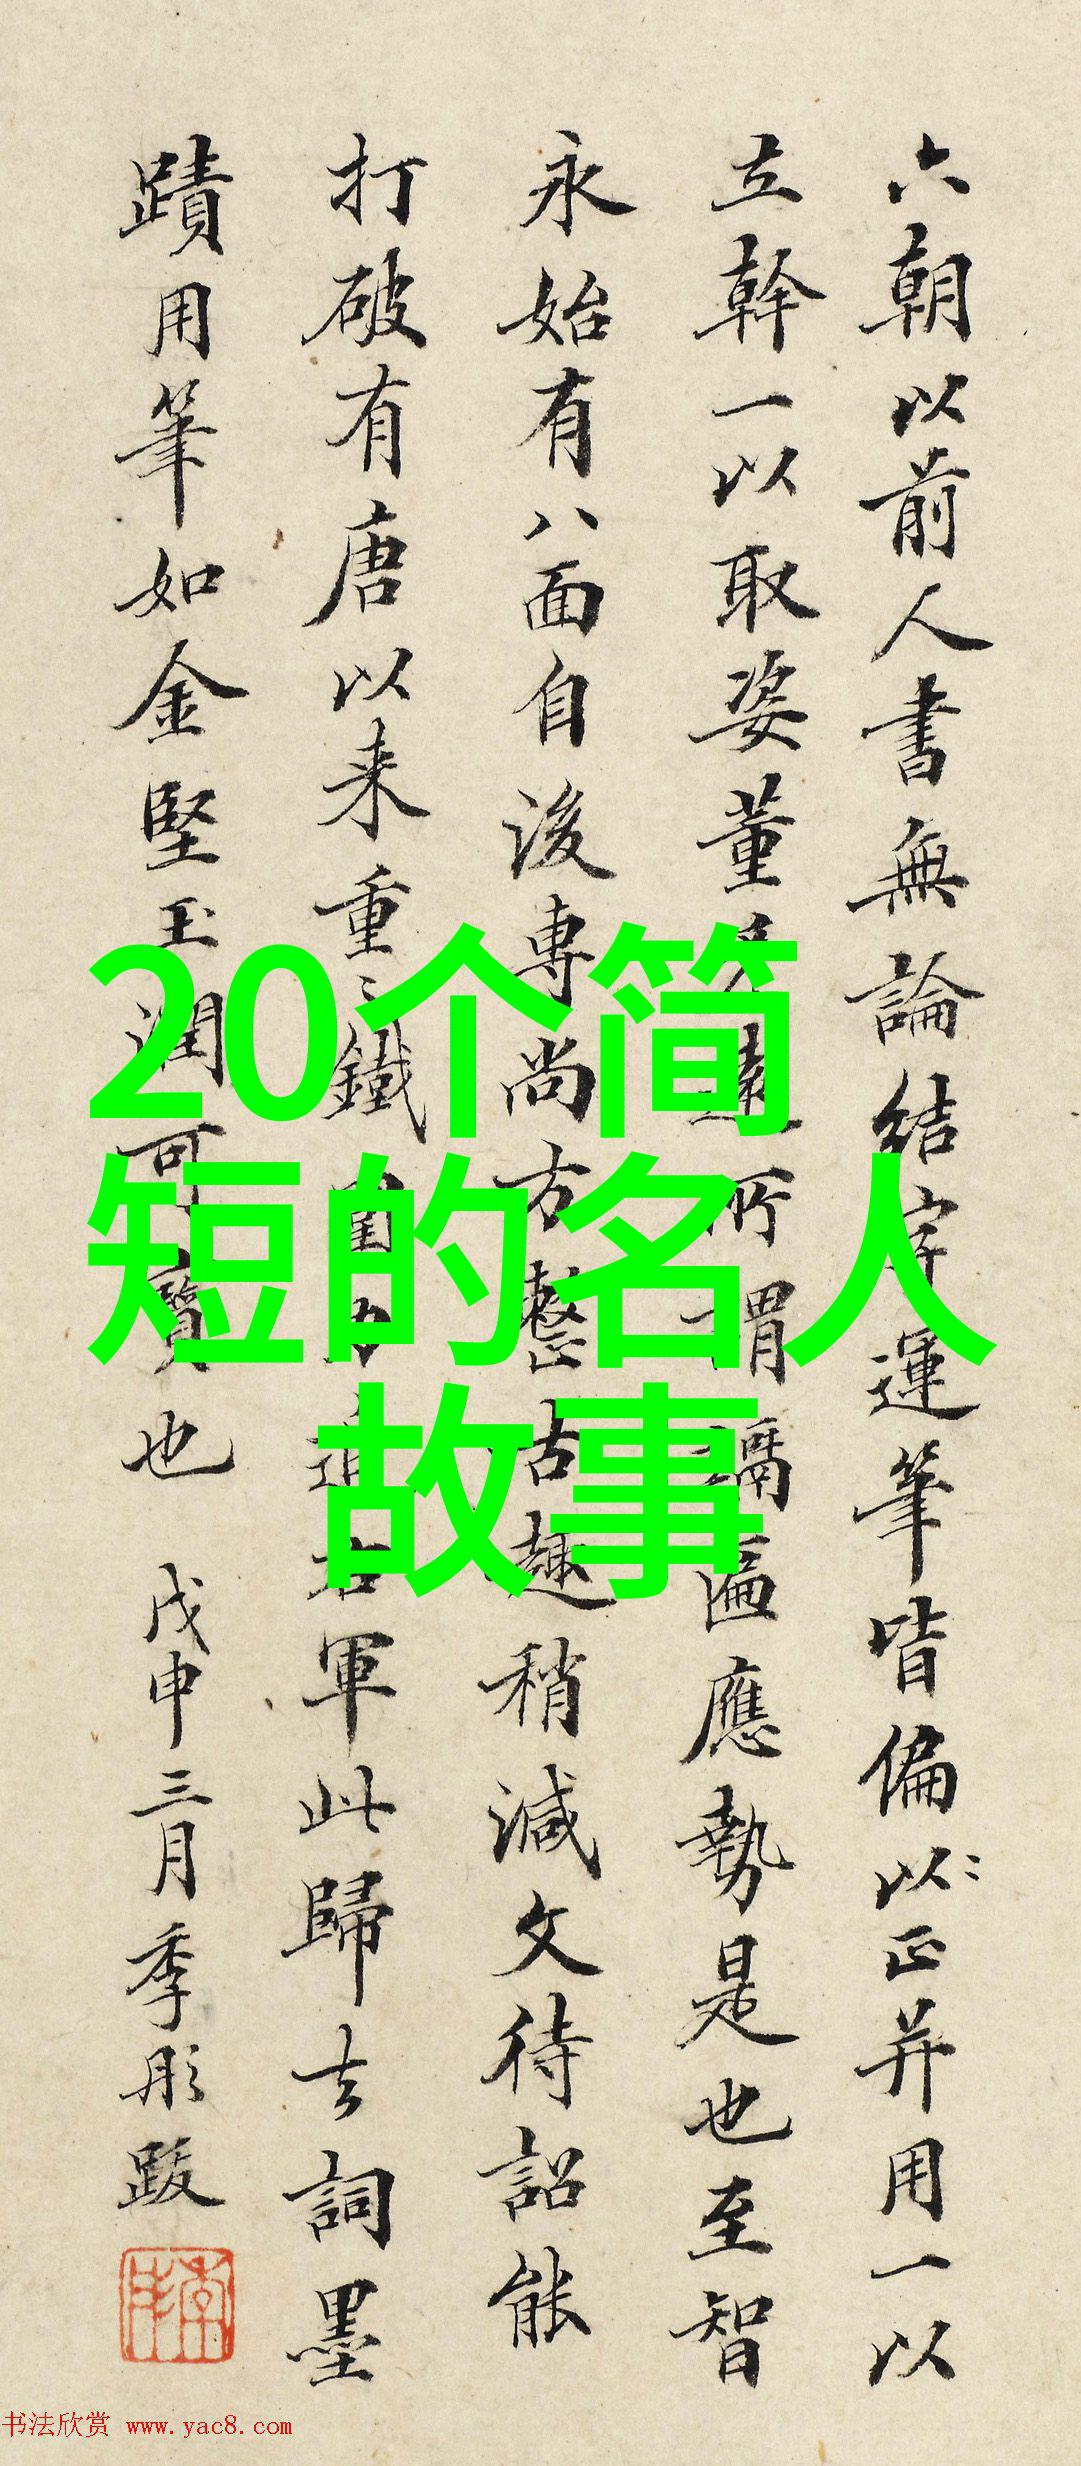 六朝以前人書無論結字運筆皆偏以正并用一以
立幹一以取姿董遠所謂匾應勢是也至智
永始有八面自後專尚方整古趣稍減文待詔能
打破有唐以来重〻鐵圍力追右軍此歸去詞墨
蹟用筆如金堅玉潤可寶也 戊申三月季彤跋
20个简
短的名人
故事
书法欣赏 www.yac8.com